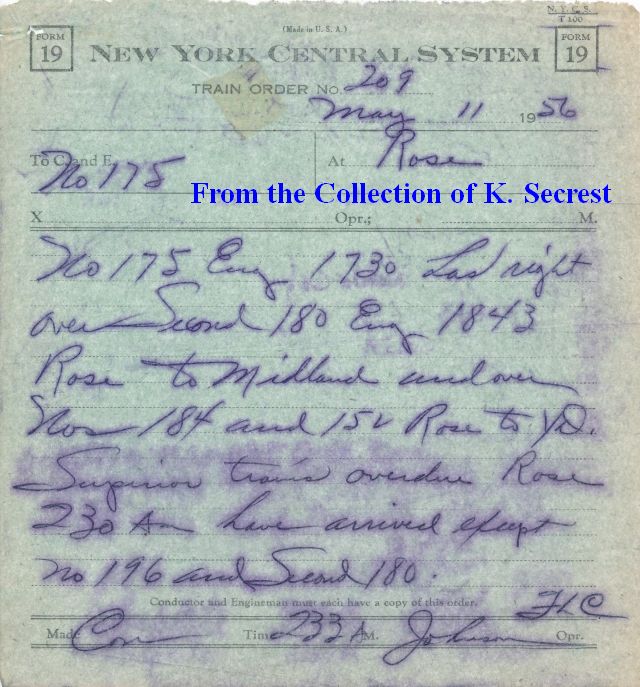 N. Y. C. S.
T 100
(Made in U. S. A.)
FORM 19 NEW YORK CENTRAL SYSTEM FORM 19
TRAIN ORDER No. 209
May 11 1956
To C. and E. No 175 At Rose
From the Collection of K. Secrest
X Opr.; M.
No 175 Eng 1730 has right
over Second 180 Eng 1843
Rose to Midland and over
Nos 184 and 152 Rose to YD.
Superior trains overdue Rose
230 Am have arrived except
no 196 and Second 180.
Conductor and Engineman must each have a copy of this order.
FLC
Made Com Time 233 A M. Johnson Opr.